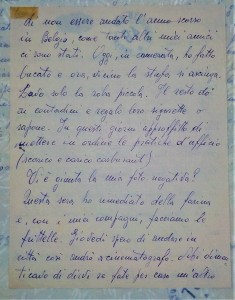 di non essere andato l'anno scorso
in Belgio, come tanti altri miei amici
ci sono stati. Oggi, in camerata, ho fatto
bucato e ora, vicino la stufa si asciuga.
Lavo solo la roba piccola. Il resto dò
ai contadini e regalo loro sigarette o
sapone. In questi giorni approfitto di
mettere in ordine le pratiche d'ufficio
(scarico e carico carburanti)
Vi è giunta la mia foto negativa?
Questa sera ho rimediato della farina
e, con i miei compagni, facciamo le
frittelle. Giovedì spero di andare in
città così andrò a cinematografo. Mi dimen
ticavo di dirvi se fate per caso